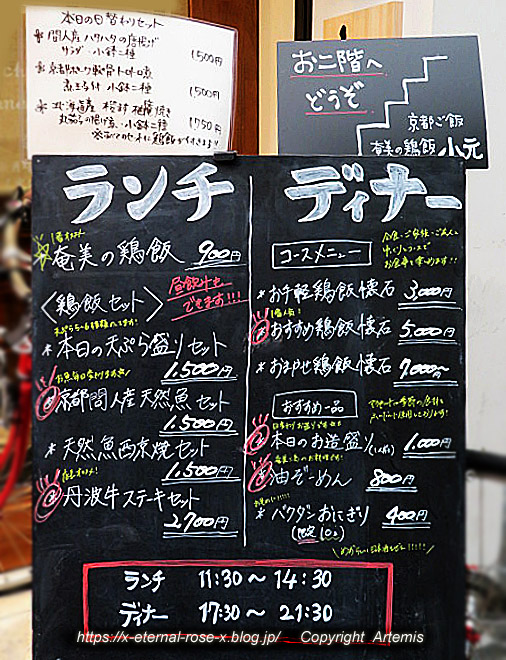 本日の日替わりセット
* 間人産ハタハタの唐揚げ
サラダ 小鉢二種 1,500円
* 京都ポーク軟骨トロトロ煮
煮玉子付 小鉢二種 1,500円
* 北海道産
小鉢二種 1,750円
お二階へ
どうぞ
京都ご飯
奄美の鶏飯 小元
ランチ
1番オススメ
奄美の鶏飯 900円
〈鶏飯セット〉
昼飲みも
できます!!!
* 本日の天ぷら盛りセット
1,500円
京都間人産天然魚セット
1,500円
* 天然魚西京焼セット
1,500円
丹波牛ステーキセット
2,700円
ディナー
コースメニュー
* お手軽鶏飯懐石 3,000円
1番人気!
おすすめ鶏飯懐石 5,000円
* おまかせ鶏飯懐石 7,000〜円
おすすめ一品
本日のお造盛り(1人前) 1,000円
油ぞーめん 800円
* バクダンおにぎり 400円
(限定10コ)
ランチ 11:30〜14:30
ディナー 17:30〜21:30
https://x-eternal-rose-x.blog.jp/ Copyright Artemis